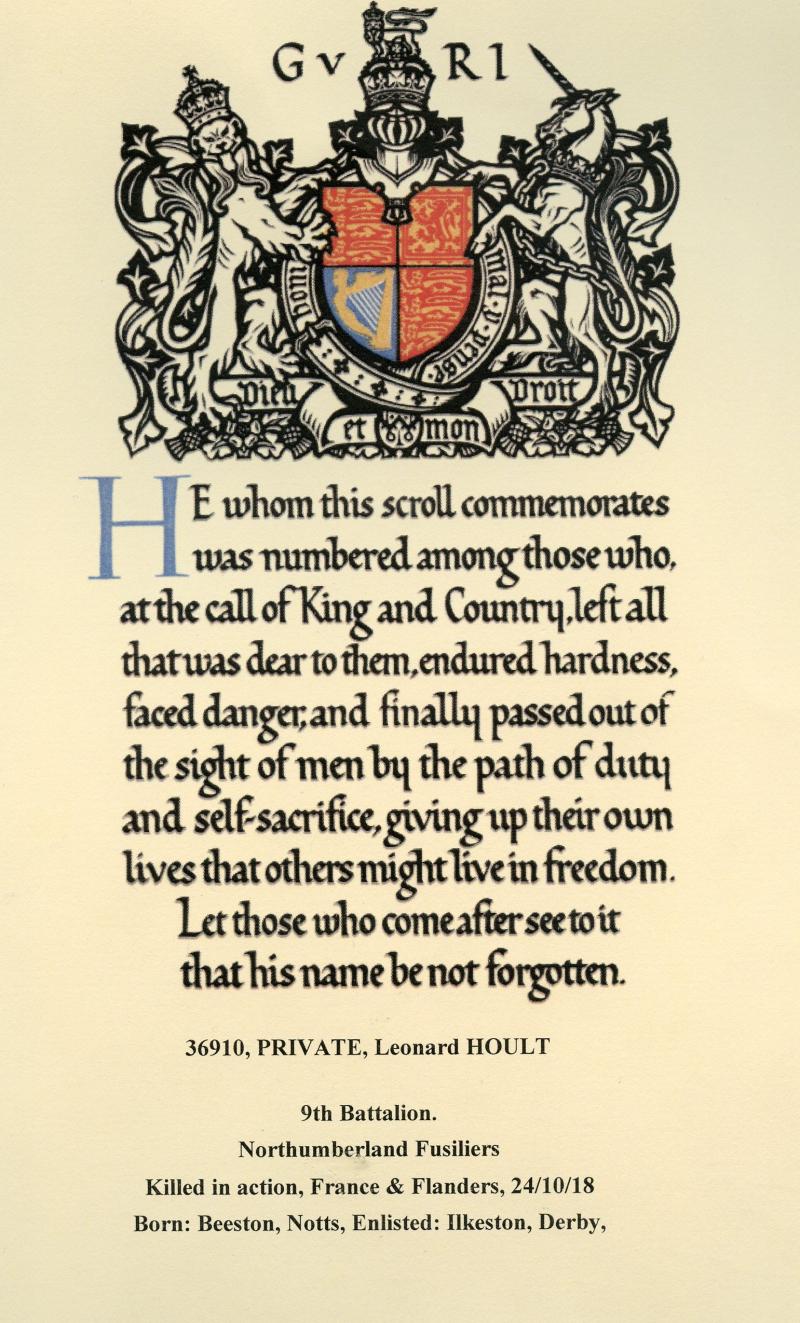 G V R I
hom mal·y·pense
Dieu Droit
et mon
HE whom this scroll commemorates
was numbered among those who,
at the call of King and Country, left all
that was dear to them, endured hardness,
faced danger, and finally passed out of
the sight of men by the path of duty
and self-sacrifice, giving up their own
lives that others might live in freedom.
Let those who come after see to it
that his name be not forgotten.
36910, PRIVATE, Leonard HOULT
9th Battalion.
Northumberland Fusiliers
Killed in action, France & Flanders, 24/10/18
Born: Beeston, Notts, Enlisted: Ilkeston, Derby,